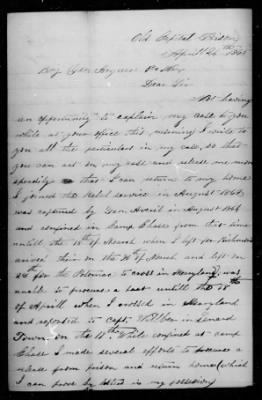 Old Capital Prison
April 24th 1865
Dear Sir
Not having
an opportunity to explain my case to you
while at your office this morning I write to
you all the particulars in my case, so that
you can act on my case and release me more
speedily so that I can return to my home
I joined the Rebel service in August 1864
was captured by Gen Averill in August 1864
and confined in Camp Chase from this time
untill the 18th of March when I left for Richmond
arived their on the of March and left on
24th for the Potomac to cross in Maryland, was
unable to procure a boat untill the
of Aprill when I crossed in Maryland
and reported to Capt in Lenard
Town, on the While confined at camp
Chase I made several efforts to procure a
release from prison and return home (which
I can prove by letters in my possession)